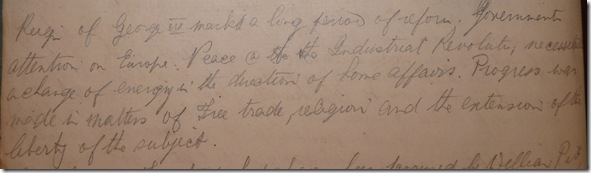 Reign of George IV marks a long period of reform. Government
attention on Europe. Peace @ the Industrial Revolutn, necessitd
a change of energy in the direction of home affairs. Progress was
made in matters of Free trade, religion and the extension of the
liberty of the subject.
by William Pitt